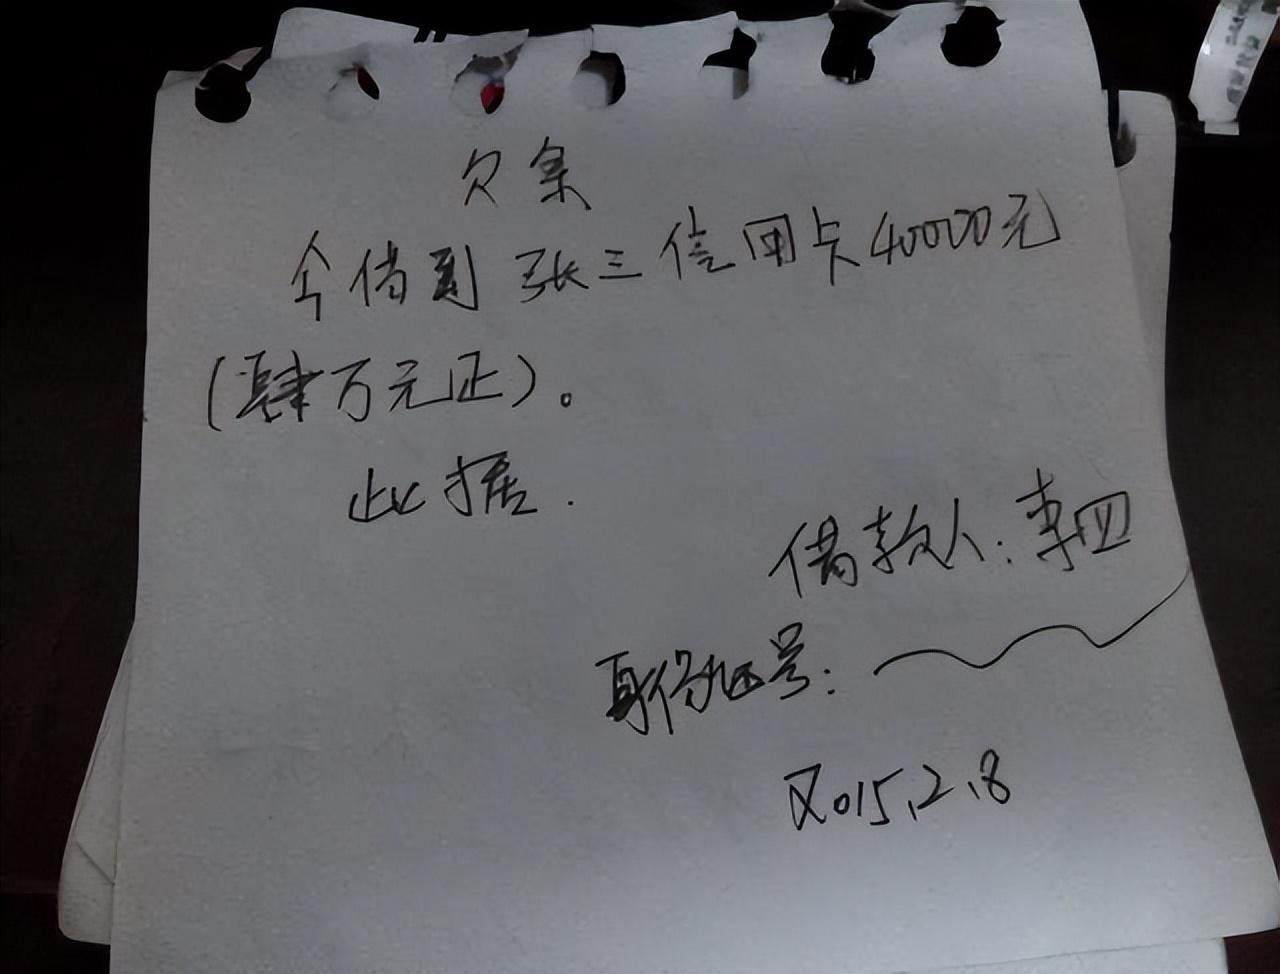 欠条
今借到张三信用卡40000元
(肆万元正)。
此据.
借款人:李四
身份证号:
2015.2.8